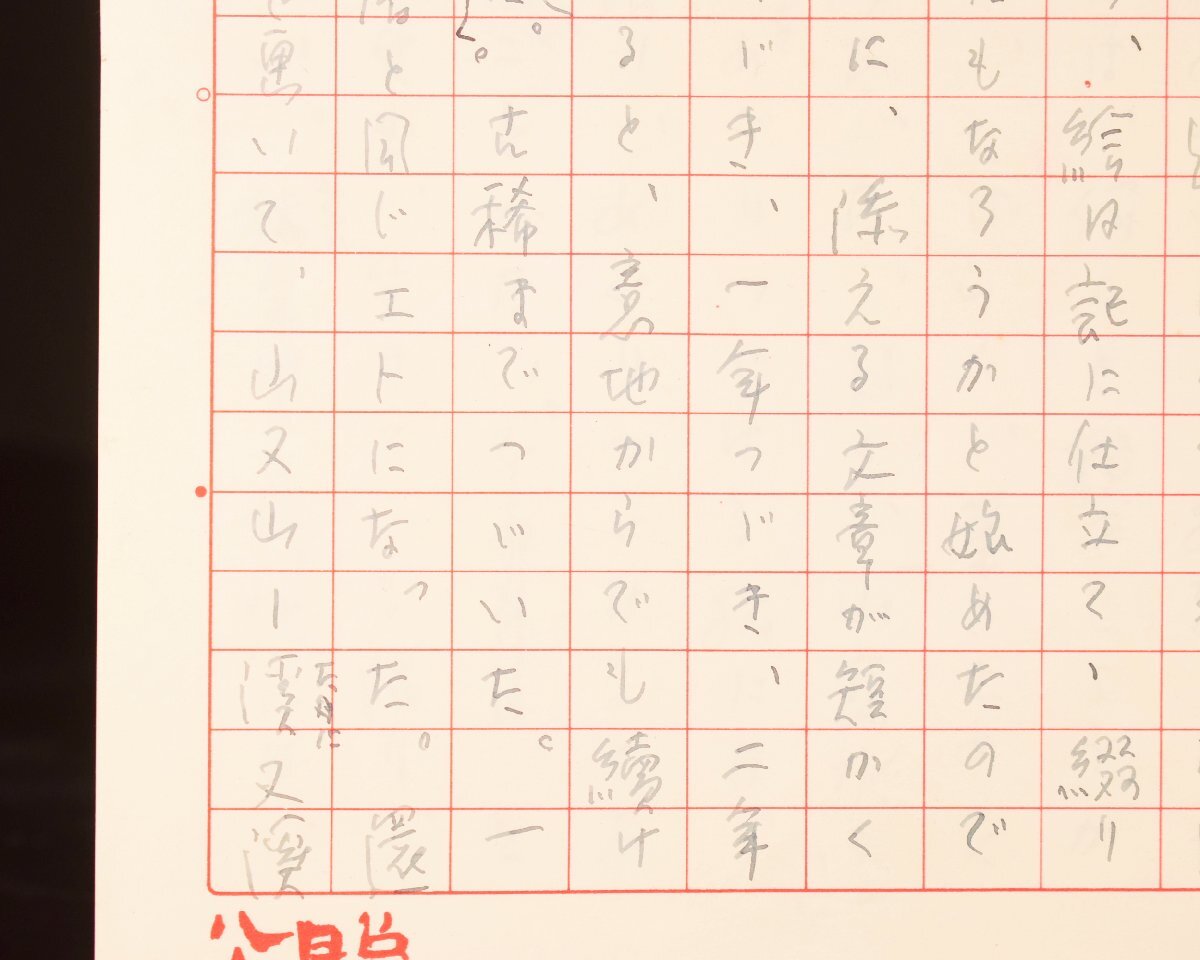 、絵日記に仕立て、綴り
もなろうかと始めたので
に、添える文章が短かく
ゞき、一年つゞき、二年
ると、意地からでも續け
。古稀までつゞいた。一
と同じエトになった。還
いて、山又山ー溪又溪